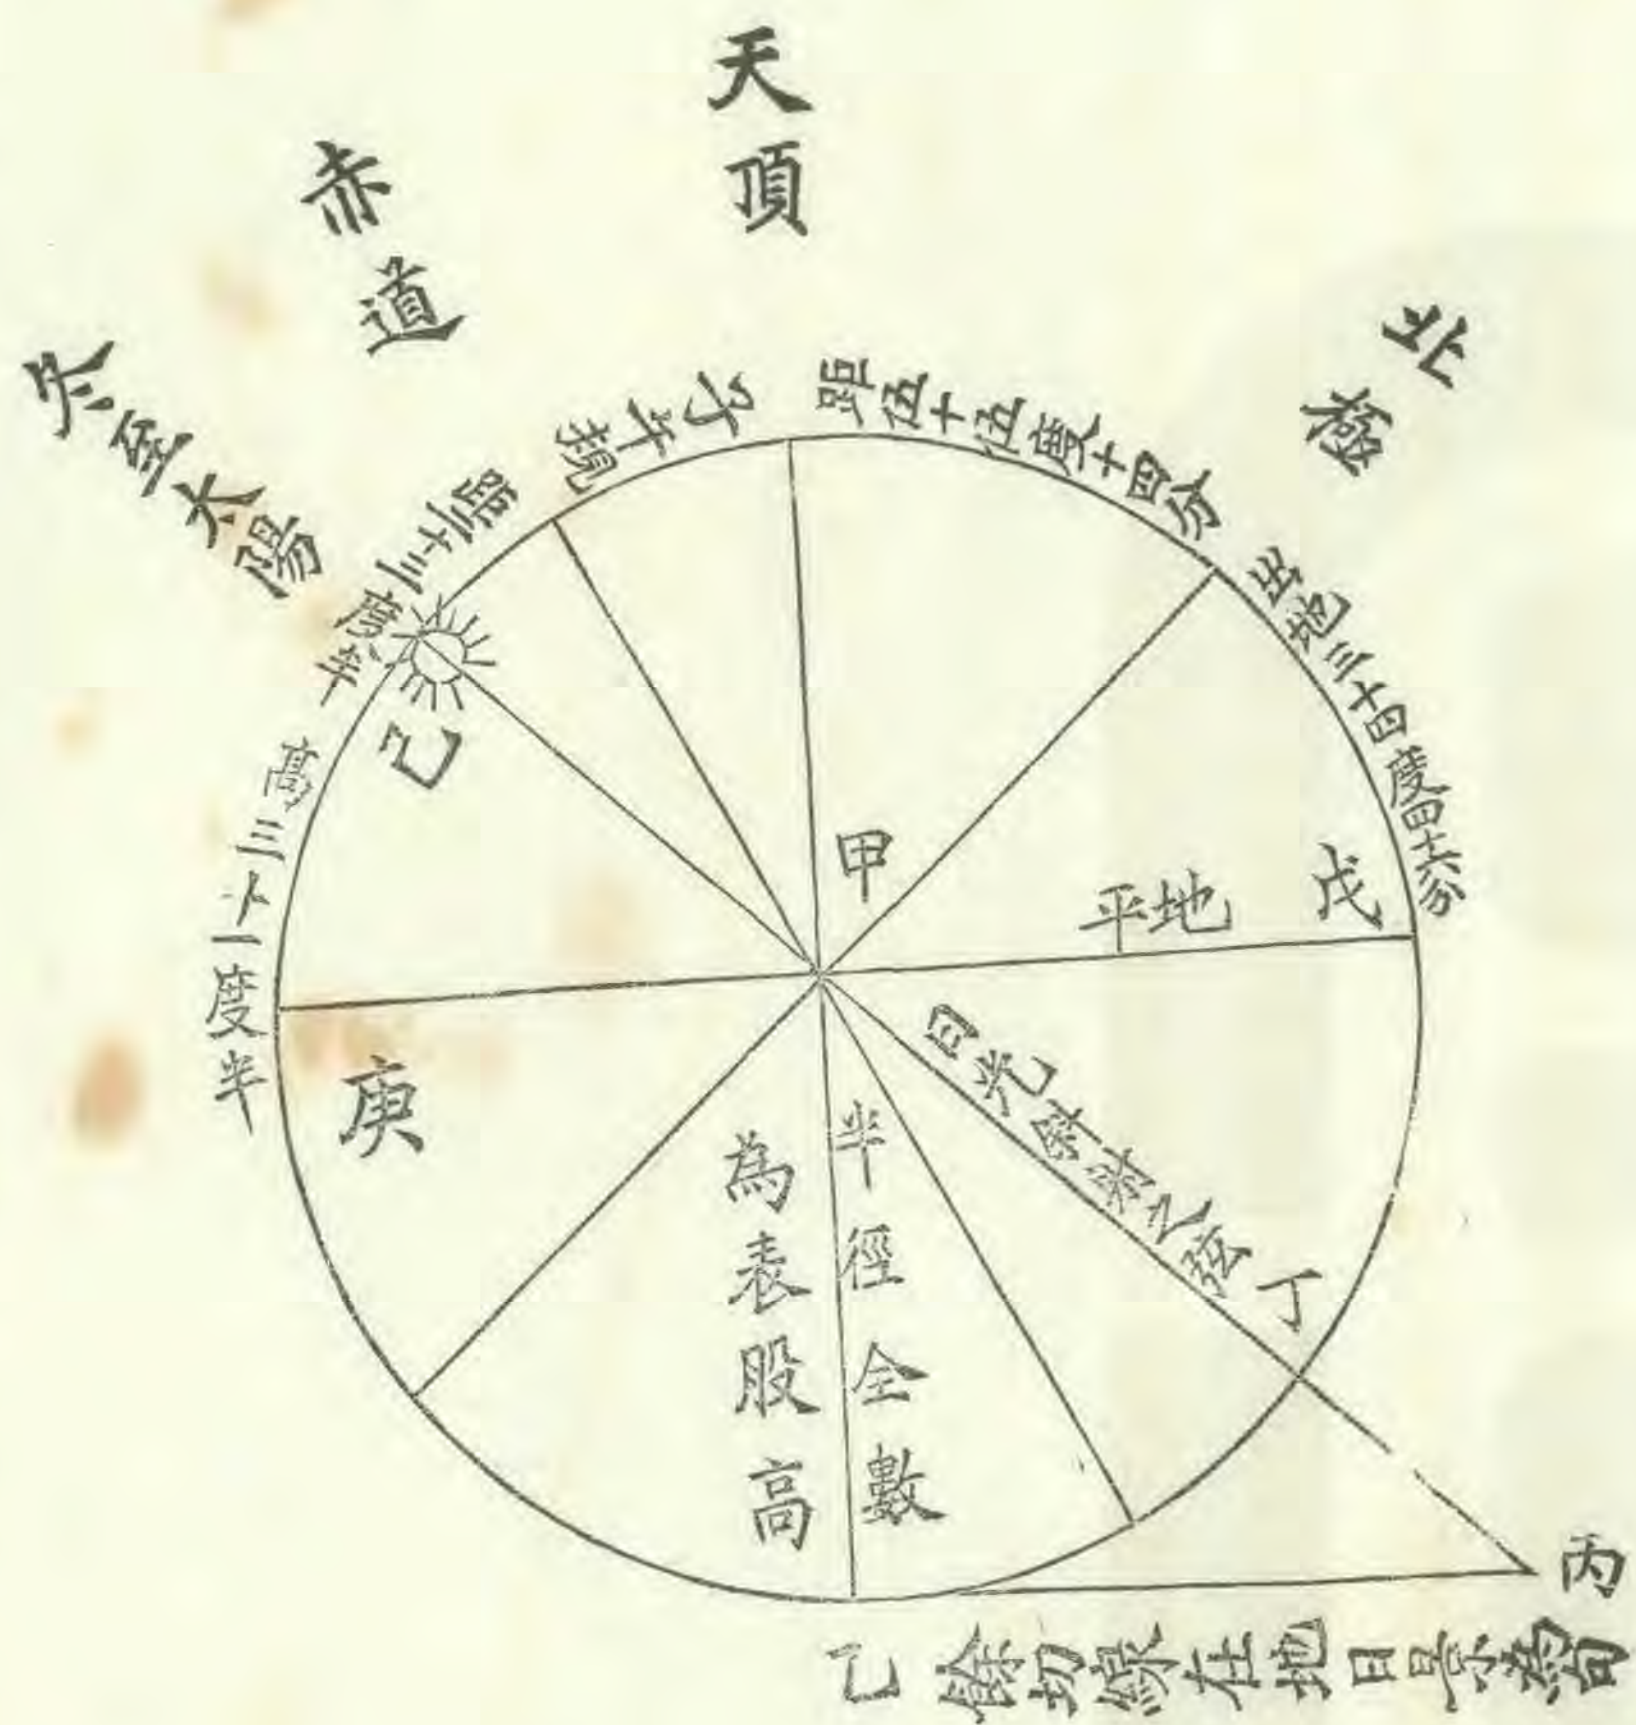 天頂
赤道
冬至太陽
北極
子午規
距伍十伍度十四分
出地三十四度四十六分
距二十三度半
高三十一度半
己
甲
戊
地平
庚
日光斜射之弦
丁
半徑全數
為表股高
丙
乙
餘切線在地日景為句